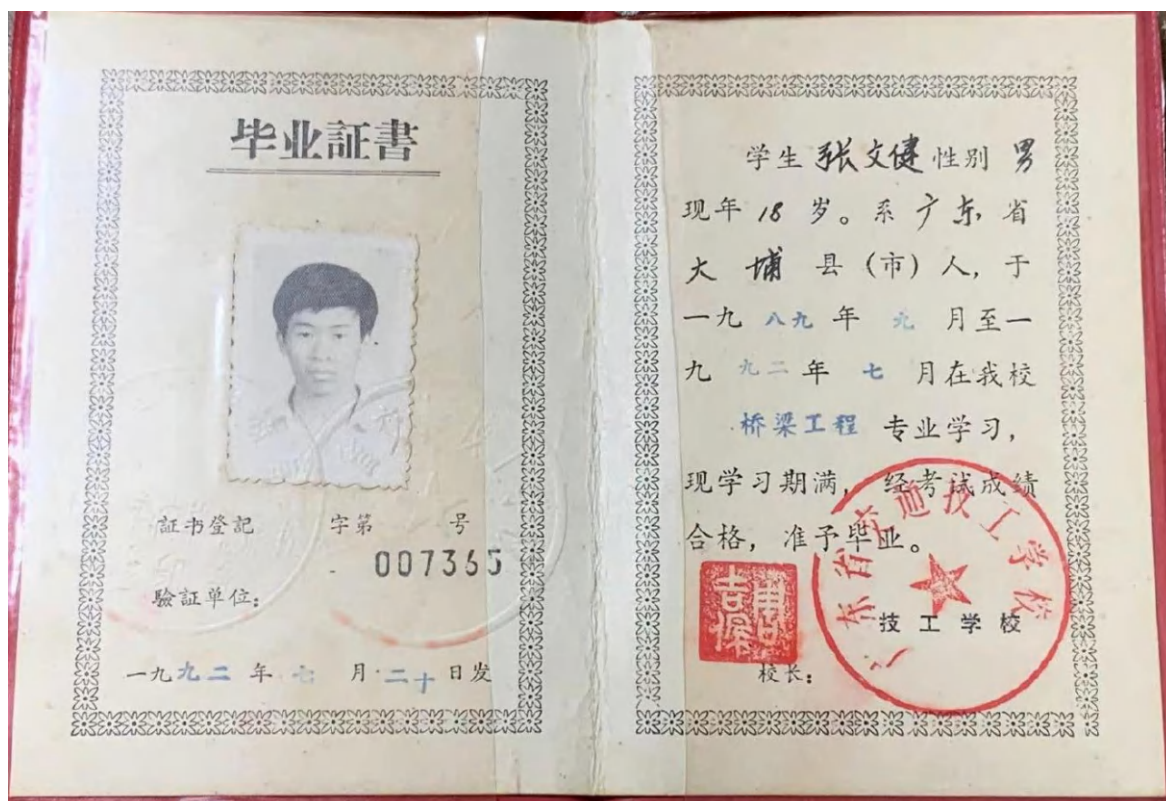 毕业証書
証书登記 字第 号
007365
驗証单位:
一九九二年七月二十日发
学生张文健性别男
现年18岁。系广东省
大埔县(市)人,于
一九八九年九月至一
九九二年七月在我校
桥梁工程专业学习,
现学习期满,经考试成绩
合格,准予毕业。
广东省交通技工学校
技工学校
校长: